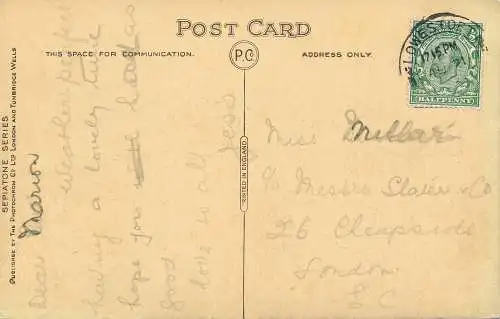 POST CARD
THIS SPACE FOR COMMUNICATION.
P.C.
ADDRESS ONLY.
HALFPENNY
SEPIATONE SERIES
PUBLISHED BY THE PHOTOCHROM CO LTD LONDON AND TUNBRIDGE WELLS
PRINTED IN ENGLAND
Dear Marion
Weather perfect
having a lovely time
hope you will have
good
love to all
Jess
Miss Millar
c/o Messrs Slater & Co
26 Cheapside
London
EC